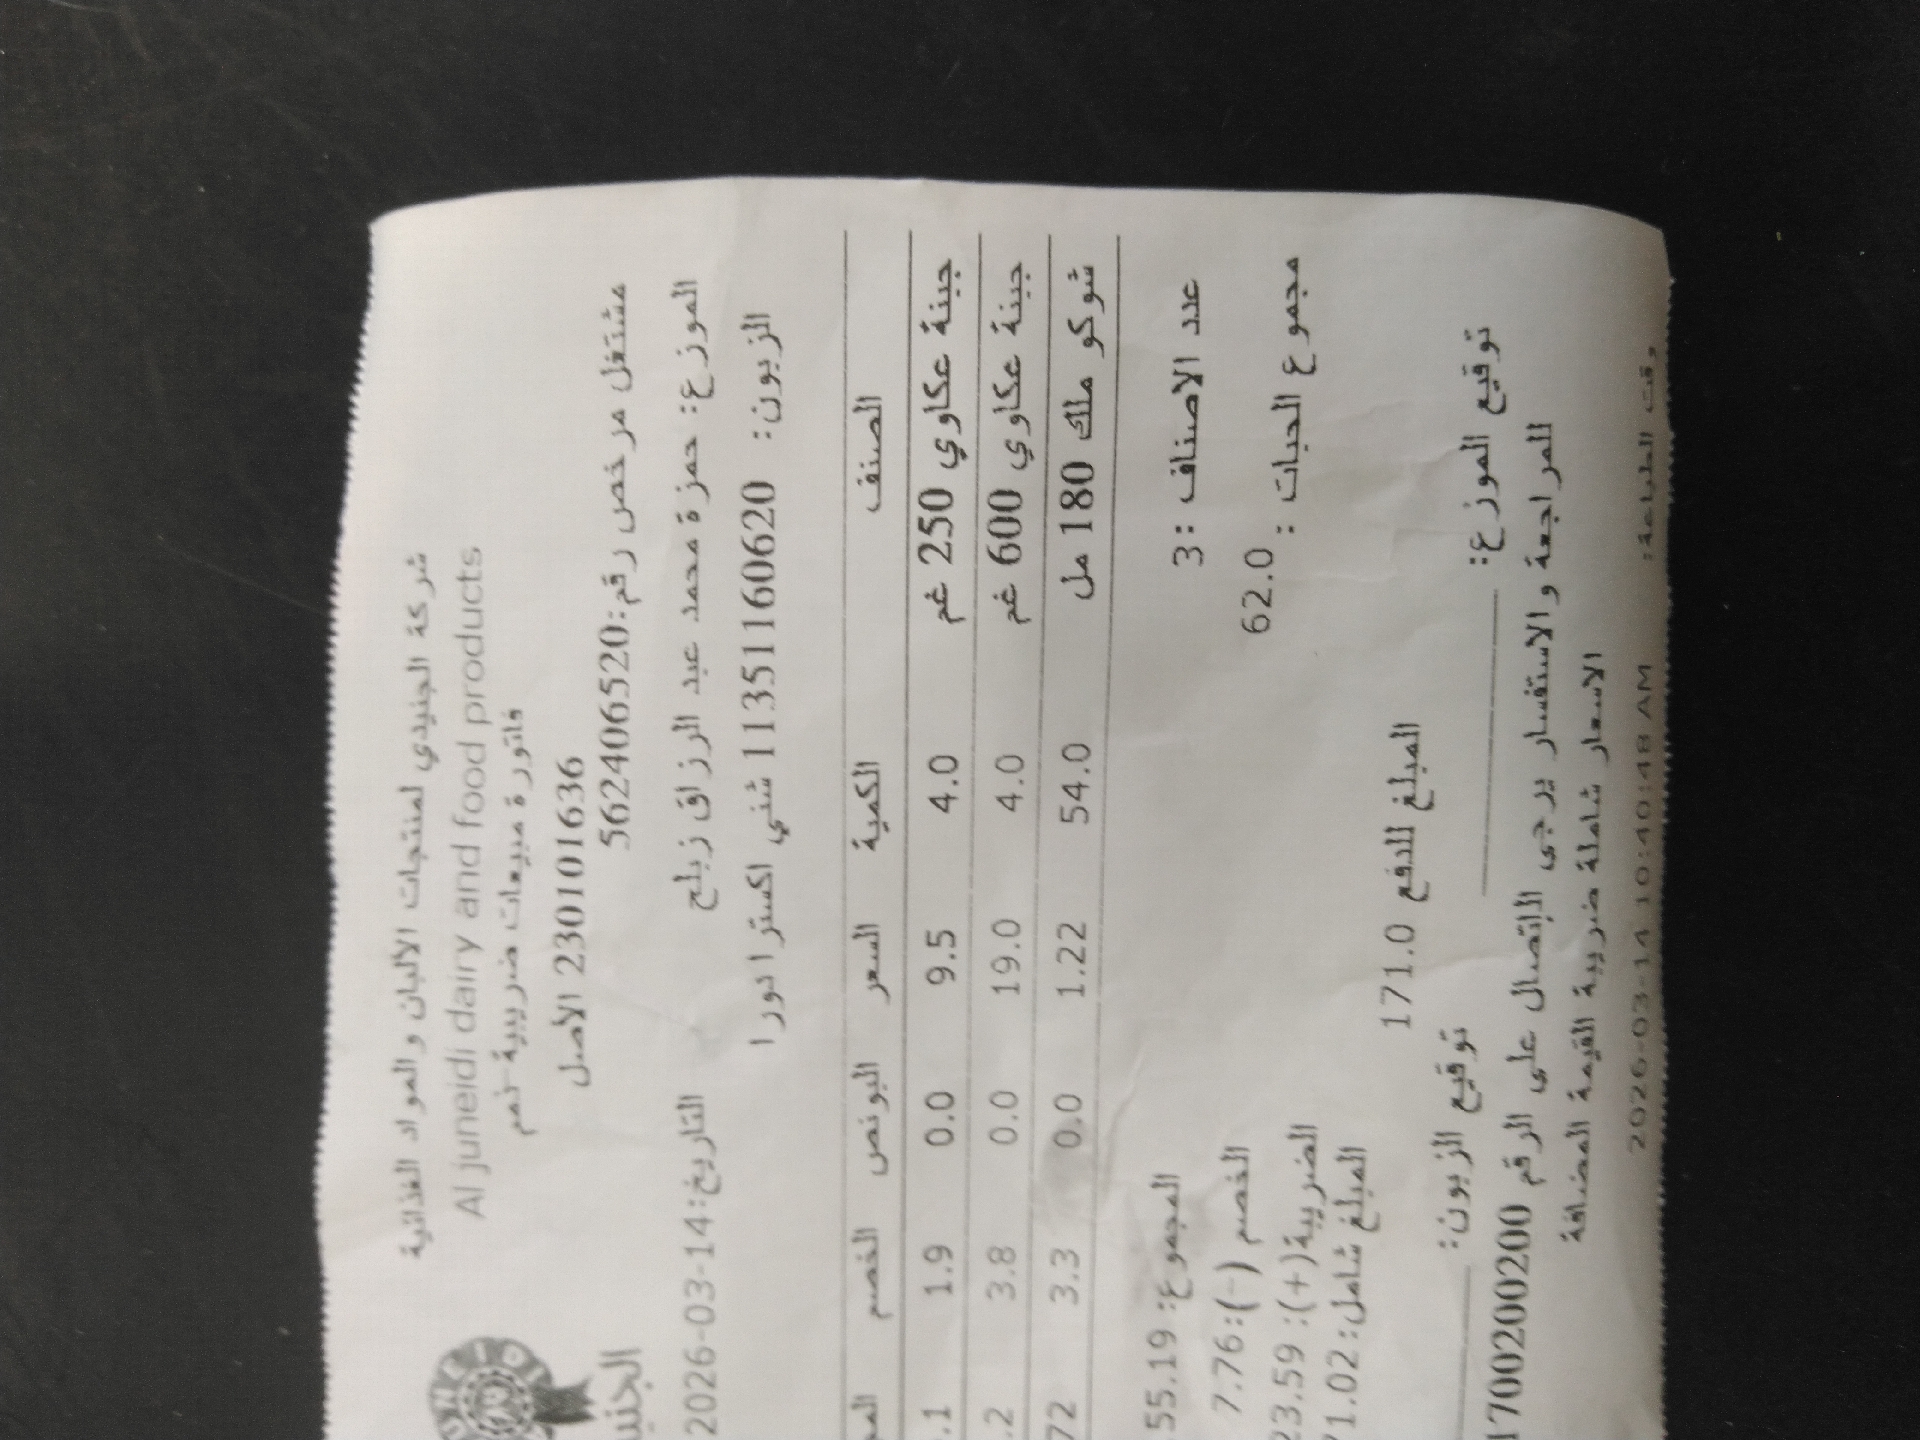 شركة الجنيدي لمنتجات الالبان والمواد الغذائية
Al juneidi dairy and food products
فاتورة مبيعات ضريبية
230101636 الأصل
مشتغل مرخص رقم:562406520
الموزع: حمزة محمد عبد الرزاق زبلح
التاريخ:2026-03-14
الزبون: 11351160620 شني اكسترا دورا
الصنف الكمية السعر البونص الخصم
جبنة عكاوي 250 غم 4.0 9.5 0.0 1.9 .1
جبنة عكاوي 600 غم 4.0 19.0 0.0 3.8 .2
شوكو ملك 180 مل 54.0 1.22 0.0 3.3 72
عدد الاصناف :3 المجموع: 55.19
مجموع الحبات : 62.0 الخصم (-):7.76
الضريبة(+): 23.59
المبلغ شامل:71.02
المبلغ للدفع 171.0
توقيع الموزع: توقيع الزبون:
للمراجعة والاستفسار يرجى الإتصال على الرقم 1700200200
الاسعار شاملة ضريبة القيمة المضافة
وقت الطباعة: 2026-03-14 10:40:48 AM